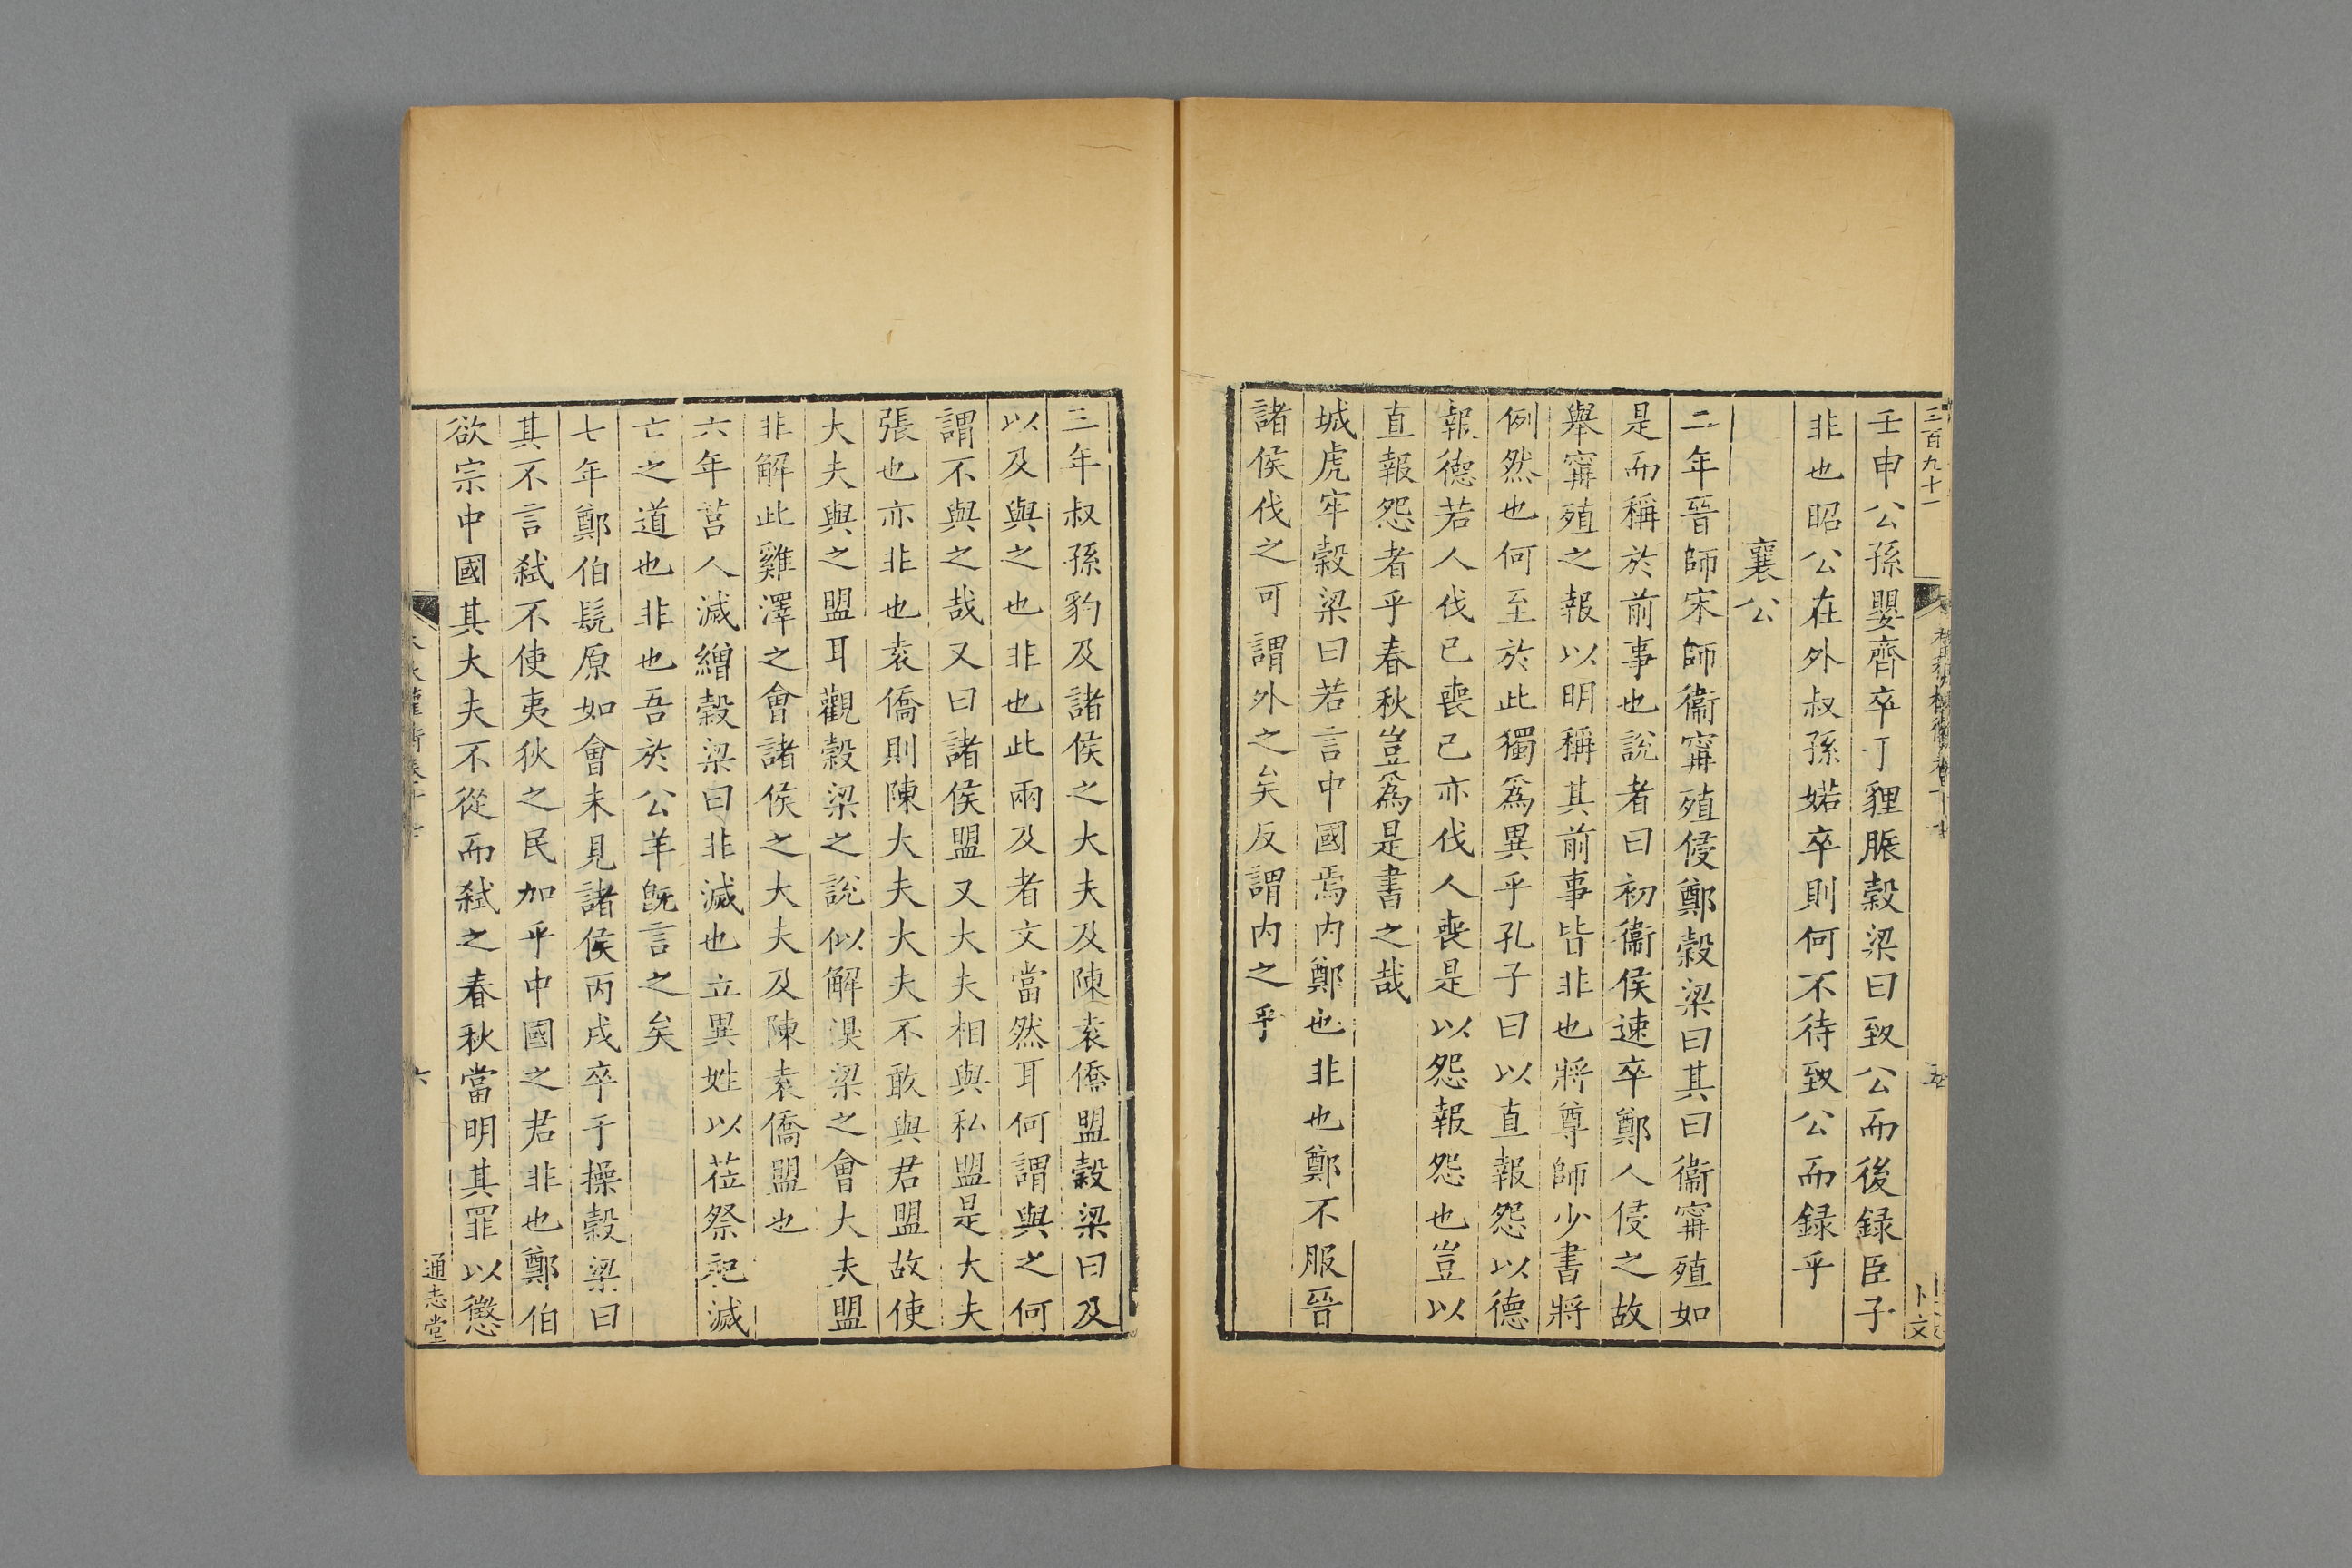 三百九十一
壬申公孫嬰齊卒丁貍脤穀梁曰致公而後録臣子
非也昭公在外叔孫婼卒則何不待致公而録乎
襄公
二年晉師宋師衞甯殖侵鄭穀梁曰其曰衞甯殖如
是而稱於前事也說者曰初衞侯速卒鄭人侵之故
舉甯殖之報以明稱其前事皆非也將尊師少書將
例然也何至於此獨爲異乎孔子曰以直報怨以德
報德若人伐已喪已亦伐人喪是以怨報怨也豈以
直報怨者乎春秋豈爲是書之哉
城虎牢穀梁曰若言中國焉内鄭也非也鄭不服晉
諸侯伐之可謂外之矣反謂内之乎
卜文
三年叔孫豹及諸侯之大夫及陳袁僑盟穀梁曰及
以及與之也非也此兩及者文當然耳何謂與之何
謂不與之哉又曰諸侯盟又大夫相與私盟是大夫
張也亦非也袁僑則陳大夫大夫不敢與君盟故使
大夫與之盟耳觀穀梁之說似解湨梁之會大夫盟
非解此雞澤之會諸侯之大夫及陳袁僑盟也
六年莒人滅繒穀梁曰非滅也立異姓以莅祭祀滅
亡之道也非也吾於公羊旣言之矣
七年鄭伯髡原如會未見諸侯丙戌卒于操穀梁曰
其不言弑不使夷狄之民加乎中國之君非也鄭伯
欲宗中國其大夫不從而弑之春秋當明其罪以懲
六
通志堂